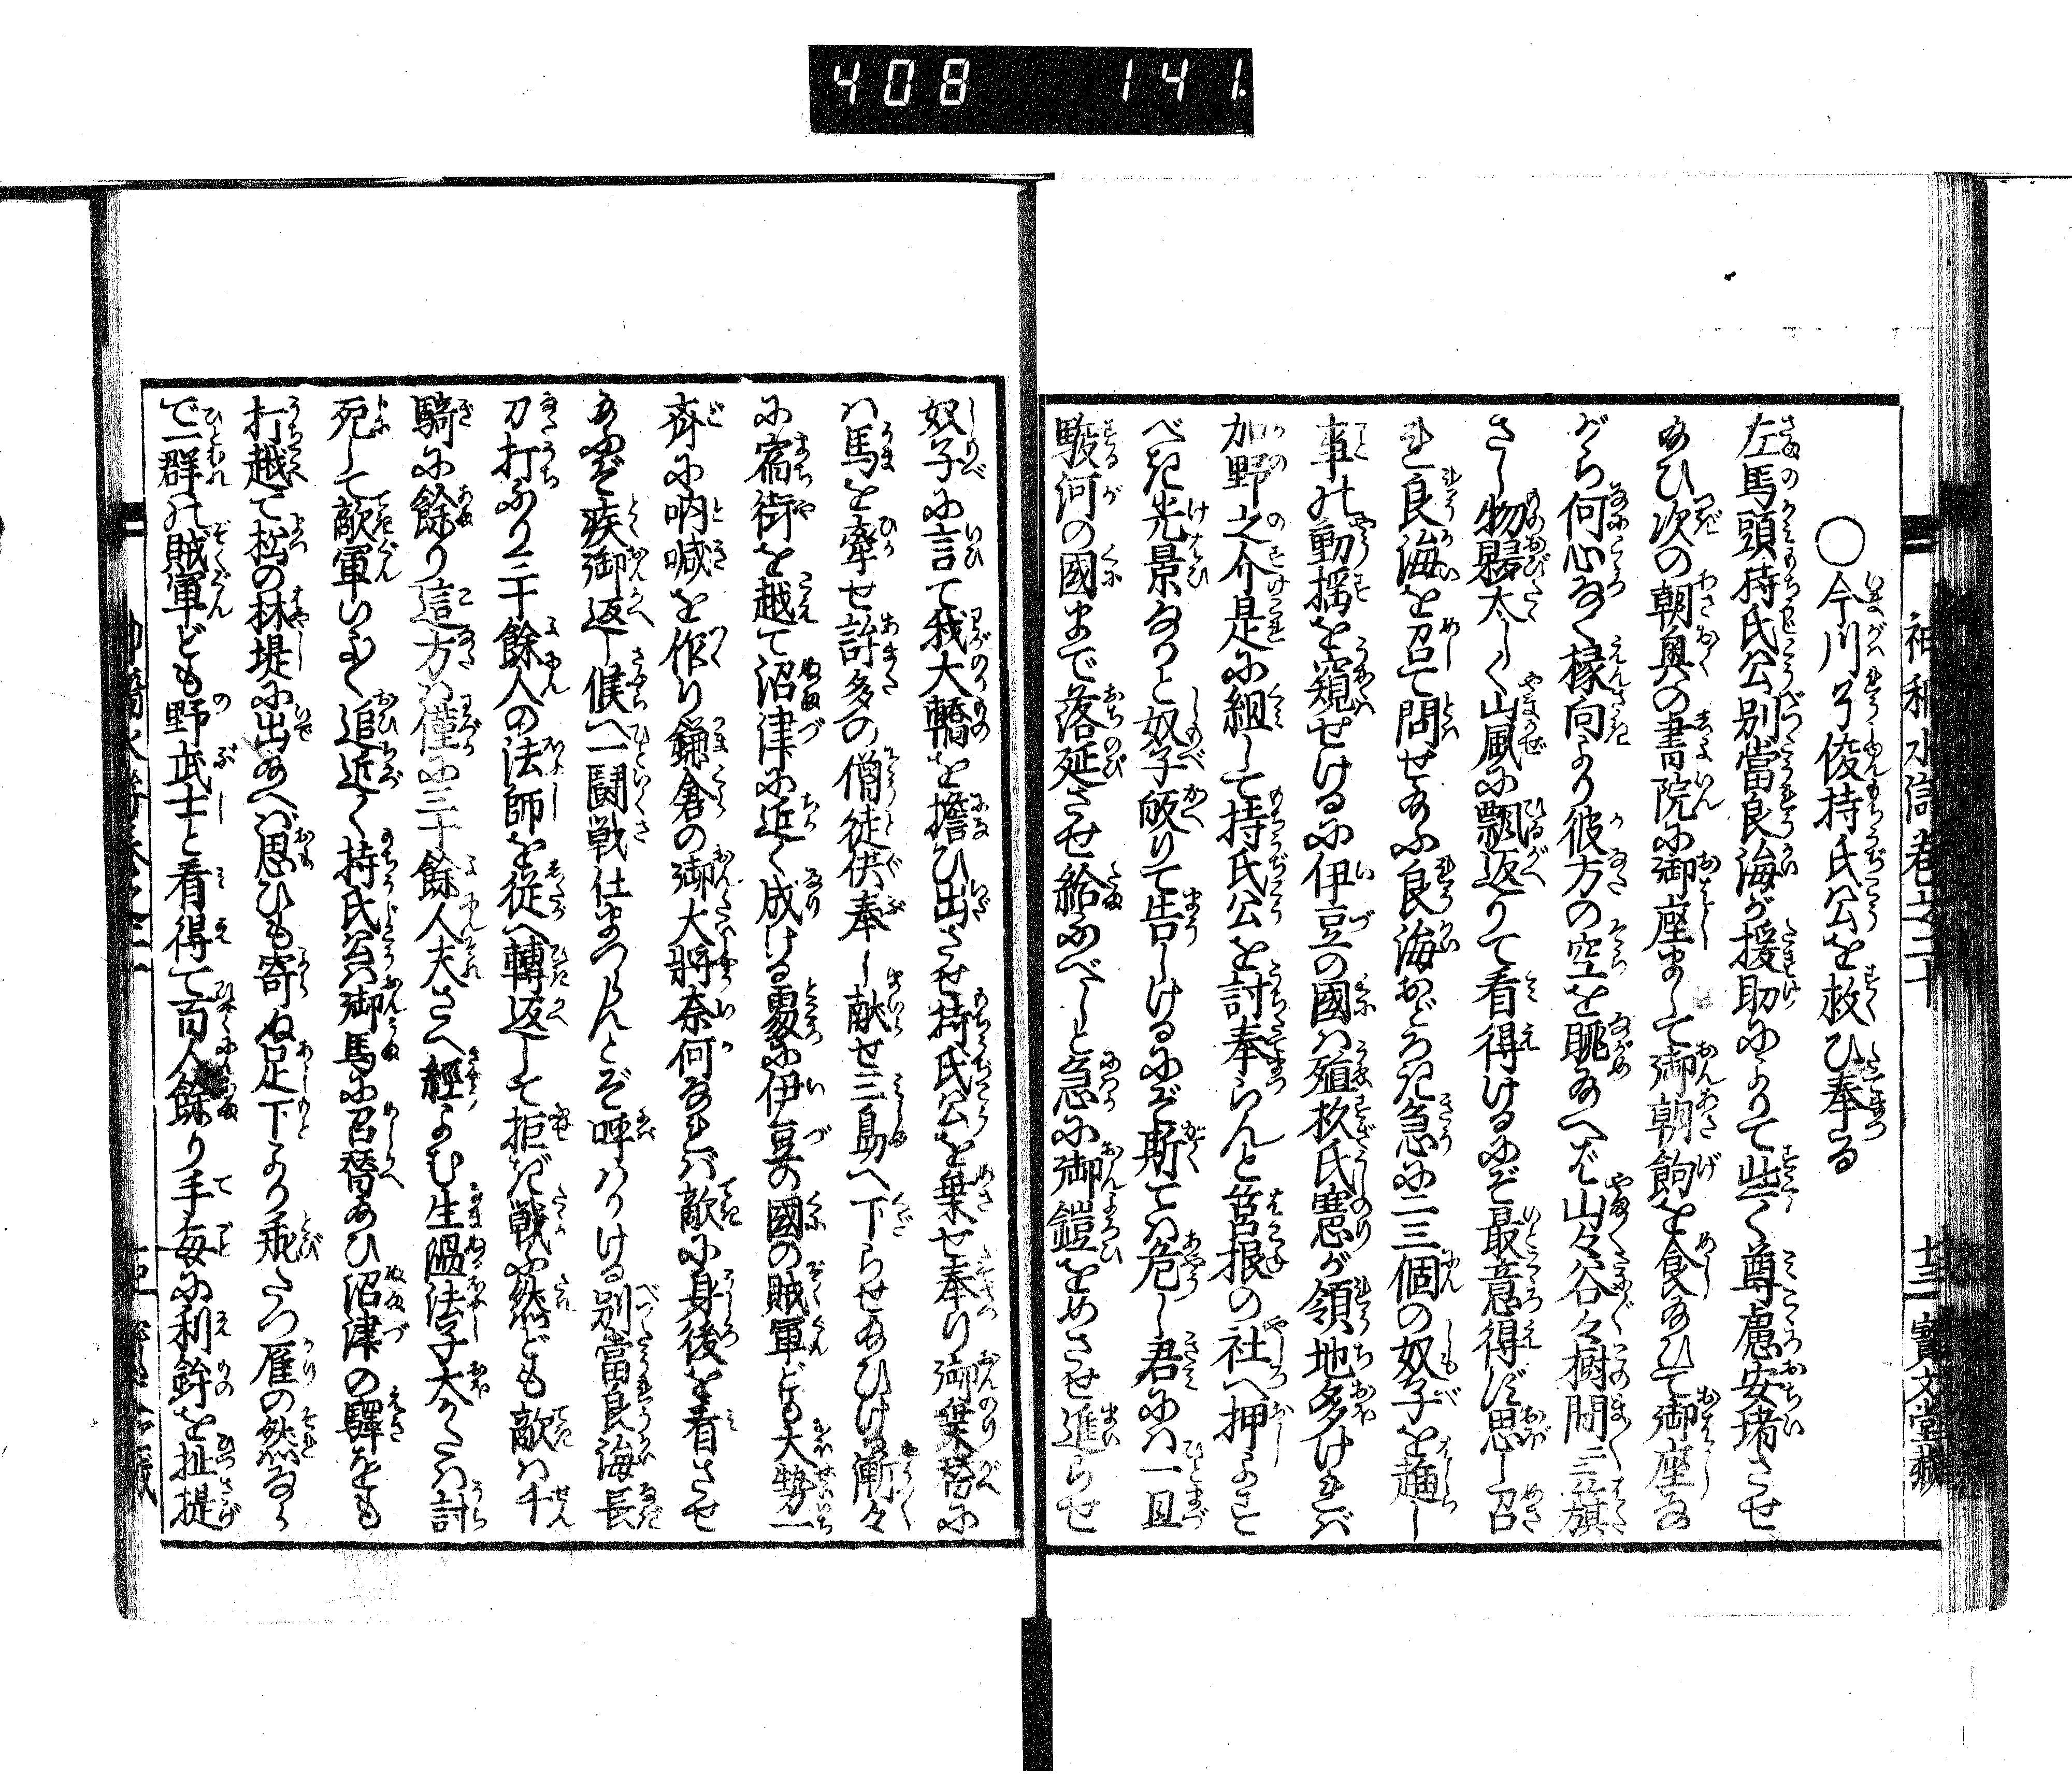 408 141
○今川了俊持氏公を救ひ奉る
左馬頭持氏公別當良海が援助によりて些く尊慮安堵させ
給ひ次の朝奥の書院に御座まして御朝餉を食給ひて御座な
がら何心なく椽向より彼方の空を眺給へば山々谷々樹間三旗
さし物夥太しく山風に飄返りて看得けるにぞ最意得ず思し召
れ良海を召て問せ給ふ良海おどろき急に二三個の奴子を趨し
事の動揺を窺せけるに伊豆の國ハ殖杉氏憲が領地多ければ
加野之介是に組して持氏公を討奉らんと筥根の社へ押よす
べき光景なりと奴子皈りて告しけるにぞ斯てハ危し君にハ一旦
駿河の國まで落延させ給ふべしと急に御鎧をめさせ進らせ
奴子に言て我大轎を擔ひ出させ持氏公を乗せ奉り御乗替に
ハ馬を牽せ許多の僧徒供奉し献せ三島へ下らせ給ひけ漸々
に宿街を越て沼津に近く成ける処に伊豆の國の賊軍ども大勢一
齊に吶喊を作り鎌倉の御大將奈何なれば敵に身後を看させ
給ふぞ疾御返し候へ一闘戦仕まつらんとぞ呼ハりける別當良海長
刀打ふり二十餘人の法師を従へ轉返して拒ぎ戦ふ然ども敵ハ千
騎に餘り這方ハ僅に三十餘人夫さへ經よむ生温法子大かたハ討
死して敵軍いよ〱追近く持氏公ハ御馬に召替給ひ沼津の驛をも
打越て松の林堤に出給へば思ひも寄ぬ足下より飛たつ雁の然なく
で一群の賊軍ども野武士と看得て百人餘り手毎に利鉾を扯提